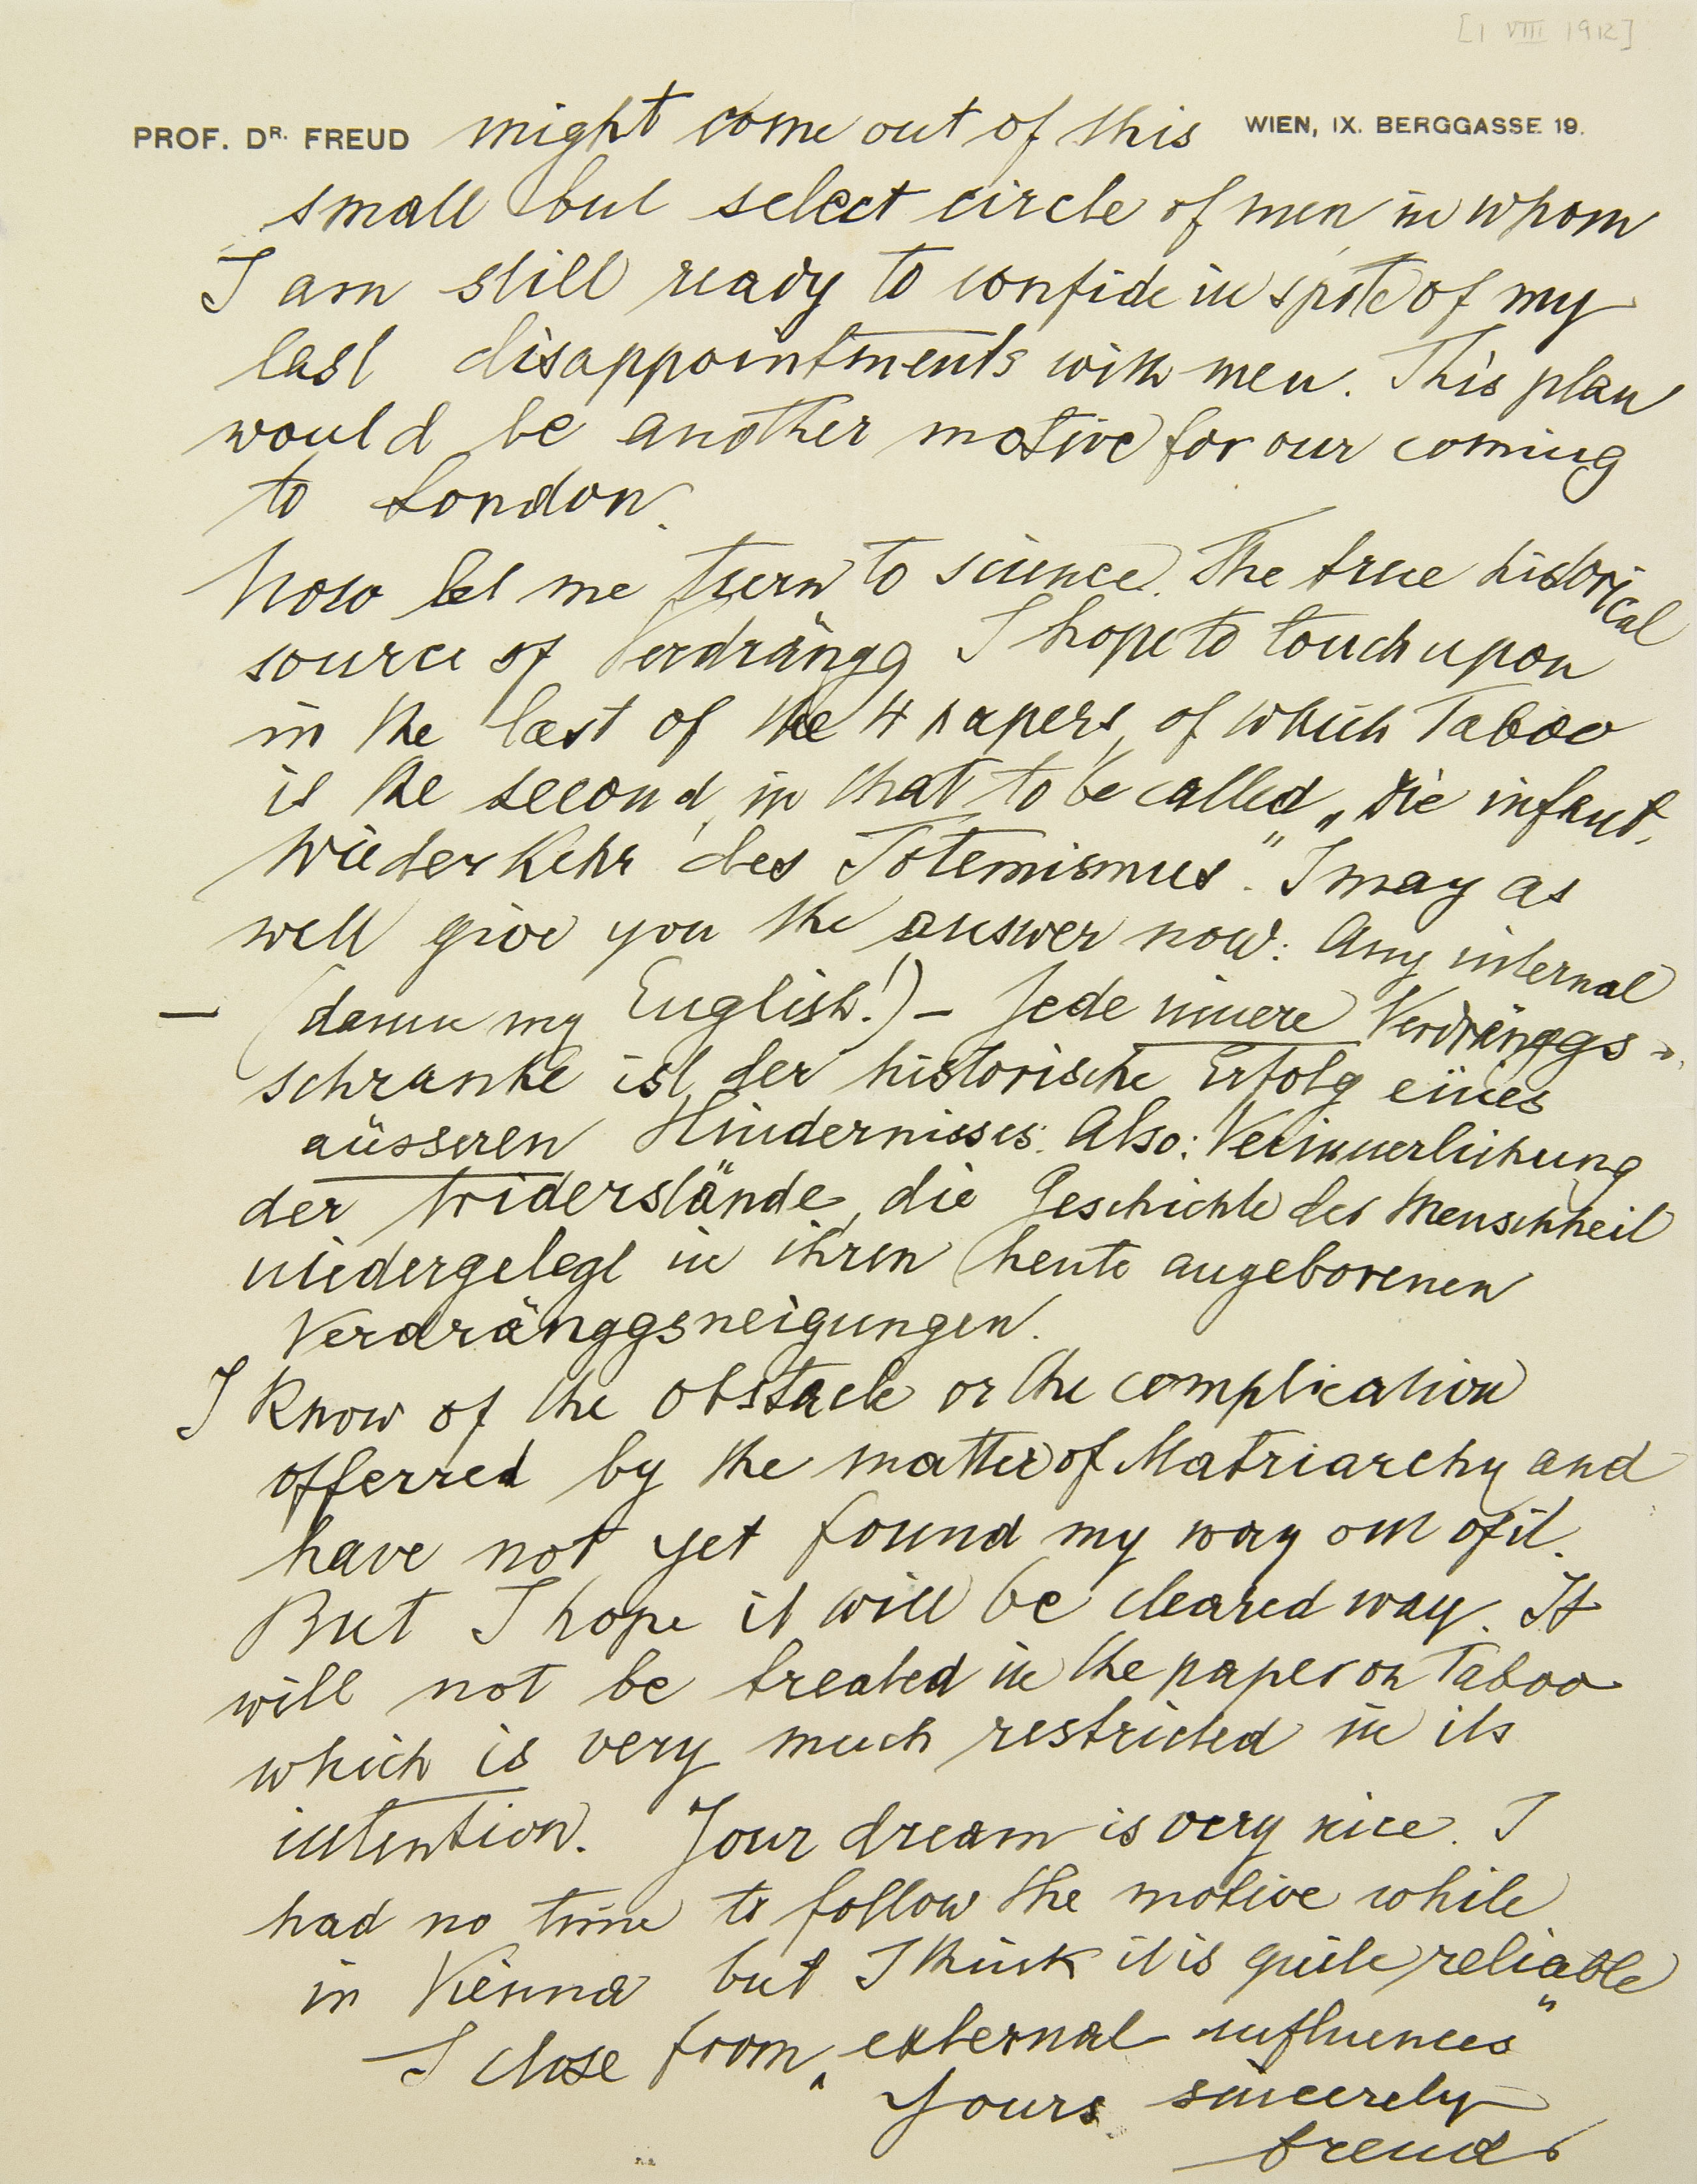 [1 VIII 1912]
PROF. DR. FREUD might come out of this WIEN, IX. BERGGASSE 19.
small but select circle of men in whom
I am still ready to confide in spite of my
last disappointments with men. This plan
would be another motive for our coming
to London.
Now let me turn to science. The true historical
source of Verdrängg I hope to touch upon
in the last of the 4 papers, of which Taboo
is the second, in that to be called „Die infant.
Wiederkehr des Totemismus". I may as
well give you the answer now: Any internal
— (damn my English!) – Jede innere Verdränggs-
schranke ist der historische Erfolg eines
äusseren Hindernisses. Also: Verinnerlichung
der Widerstände, die Geschichte der Menschheit
niedergelegt in ihren heute angeborenen
Verdränggsneigungen.
I know of the obstacle or the complication
offerred by the matter of Matriarchy and
have not yet found my way out of it.
But I hope it will be cleared way. It
will not be treated in the paper on Taboo
which is very much restricted in its
intention. Your dream is very nice. I
had no time to follow the motive while
in Vienna but I think it is quite reliable
I close from „external influences"
Yours sincerely
Freud